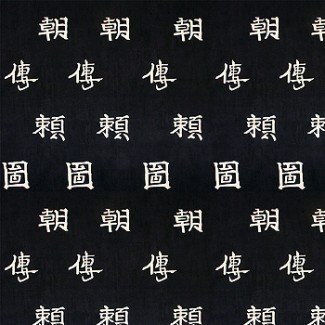 朝 朝 朝 朝 朝
傳 傳 傳 傳 傳
頼 頼 頼 頼 頼
圖 圖 圖 圖 圖
朝 朝 朝 朝 朝
傳 傳 傳 傳 傳
頼 頼 頼 頼 頼